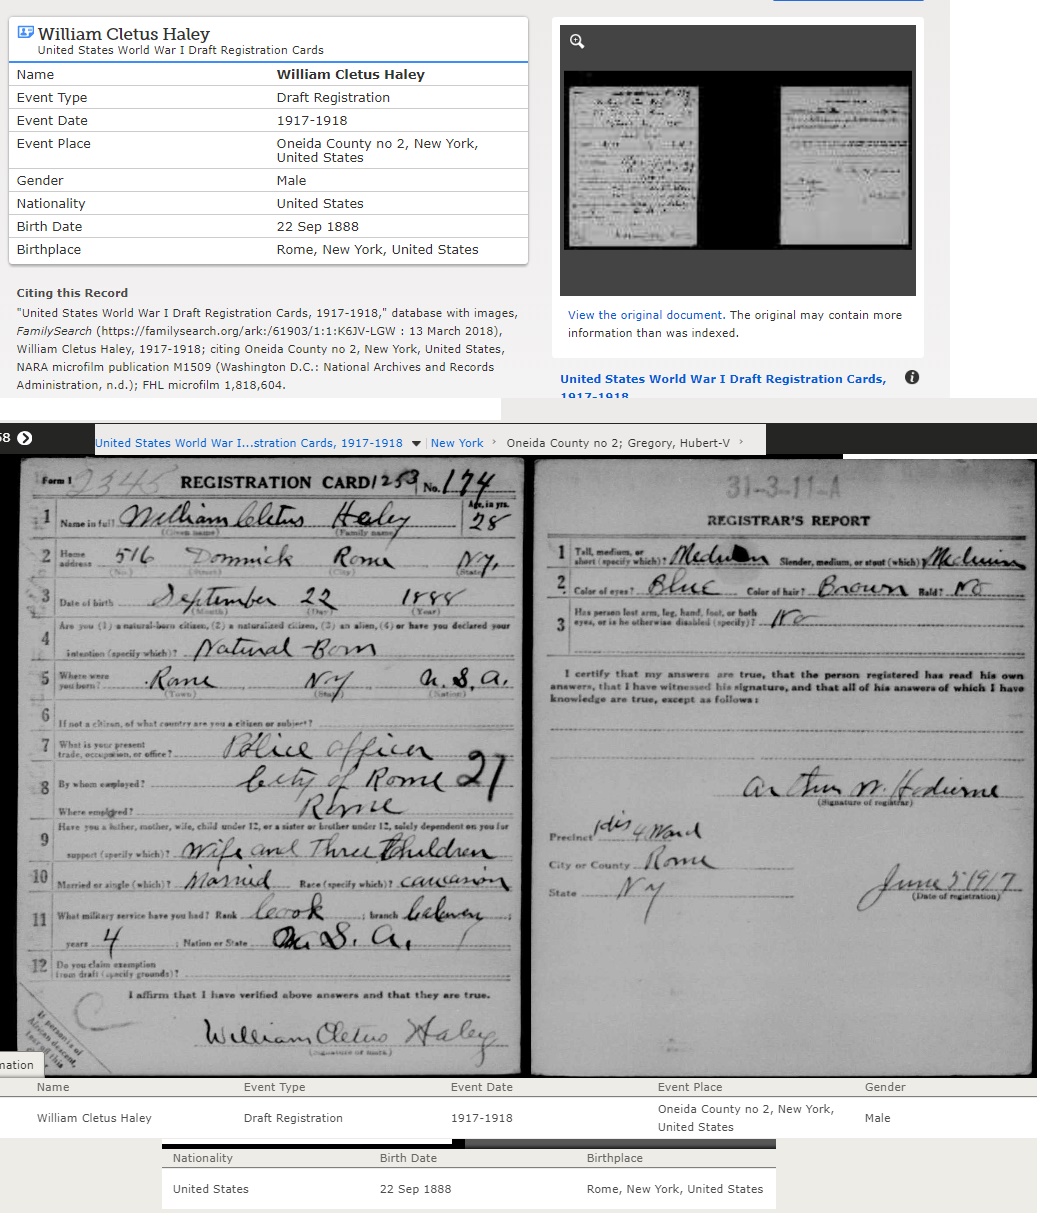 William Cletus Haley
United States World War I Draft Registration Cards
Name William Cletus Haley
Event Type Draft Registration
Event Date 1917-1918
Event Place Oneida County no 2, New York,
United States
Gender Male
Nationality United States
Birth Date 22 Sep 1888
Birthplace Rome, New York, United States
Citing this Record
"United States World War I Draft Registration Cards, 1917-1918," database with images,
FamilySearch (https://familysearch.org/ark:/61903/1:1:K6JV-LGW : 13 March 2018),
William Cletus Haley, 1917-1918; citing Oneida County no 2, New York, United States,
NARA microfilm publication M1509 (Washington D.C.: National Archives and Records
Administration, n.d.); FHL microfilm 1,818,604.
View the original document. The original may contain more
information than was indexed.
United States World War I Draft Registration Cards,
1917-1918
58
United States World War I...stration Cards, 1917-1918 New York Oneida County no 2; Gregory, Hubert-V
Form 1 2345 REGISTRATION CARD 1253 No. 174
1 Name in full William Cletus Haley Age, in yrs. 28
(Given name) (Family name)
2 Home address 516 Dominick Rome N.Y.
(No.) (Street) (City) (State)
3 Date of birth September 22 1888
(Month) (Day) (Year)
4 Are you (1) a natural-born citizen, (2) a naturalized citizen, (3) an alien, (4) or have you declared your
intention (specify which)? Natural-Born
5 Where were you born? Rome NY U.S.A.
(Town) (State) (Nation)
6 If not a citizen, of what country are you a citizen or subject?
7 What is your present trade, occupation, or office? Police Officer
8 By whom employed? City of Rome 27
Where employed? Rome
9 Have you a father, mother, wife, child under 12, or a sister or brother under 12, solely dependent on you for
support (specify which)? Wife and Three Children
10 Married or single (which)? Married Race (specify which)? caucasion
11 What military service have you had? Rank Cook ; branch ;
years 4 ; Nation or State U.S.A.
12 Do you claim exemption from draft (specify grounds)?
I affirm that I have verified above answers and that they are true.
William Cletus Haley
(Signature or mark)
If person is of African descent, tear off this corner
31-3-11-A
REGISTRAR'S REPORT
1 Tall, medium, or short (specify which)? Medium Slender, medium, or stout (which)? Medium
2 Color of eyes? Blue Color of hair? Brown Bald? No
3 Has person lost arm, leg, hand, foot, or both eyes, or is he otherwise disabled (specify)? No
I certify that my answers are true, that the person registered has read his own
answers, that I have witnessed his signature, and that all of his answers of which I have
knowledge are true, except as follows:
Arthur W.
(Signature of registrar)
Precinct 1 dis 4 Ward
City or County Rome
State NY
June 5 1917
(Date of registration)
mation
Name Event Type Event Date Event Place Gender
William Cletus Haley Draft Registration 1917-1918 Oneida County no 2, New York, United States Male
Nationality Birth Date Birthplace
United States 22 Sep 1888 Rome, New York, United States